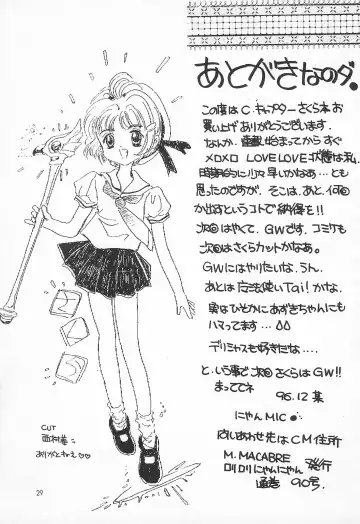 あとがきなのダ。
この度はC.キャプターさくら本お
買い上げありがとうございます。
なんか、連載始まってから すぐ
メロメロ LOVE LOVE状態は私
時期的に 早いかなあ…とも
思ったのですが、そこは、あと、何回
か出すというコトで納得を!!
次回はやくて、GWです。コミケも
次回はさくらカットかなあ。
GWにはやりたいな、うん。
あとは 使いTai! かな。
実はひそかにあずきちゃんにも
ハマってます…
デリシャスも好きだな…
と、いう事で 次回 さくらは GW!!
まっててネ
96.12 某
にゃんMIC
問いあわせ先は CM住所
M. MACABRE 発行
ロリロリにゃんにゃん
通巻 90号
CUT
西村
ありがとねえ♡♡
29